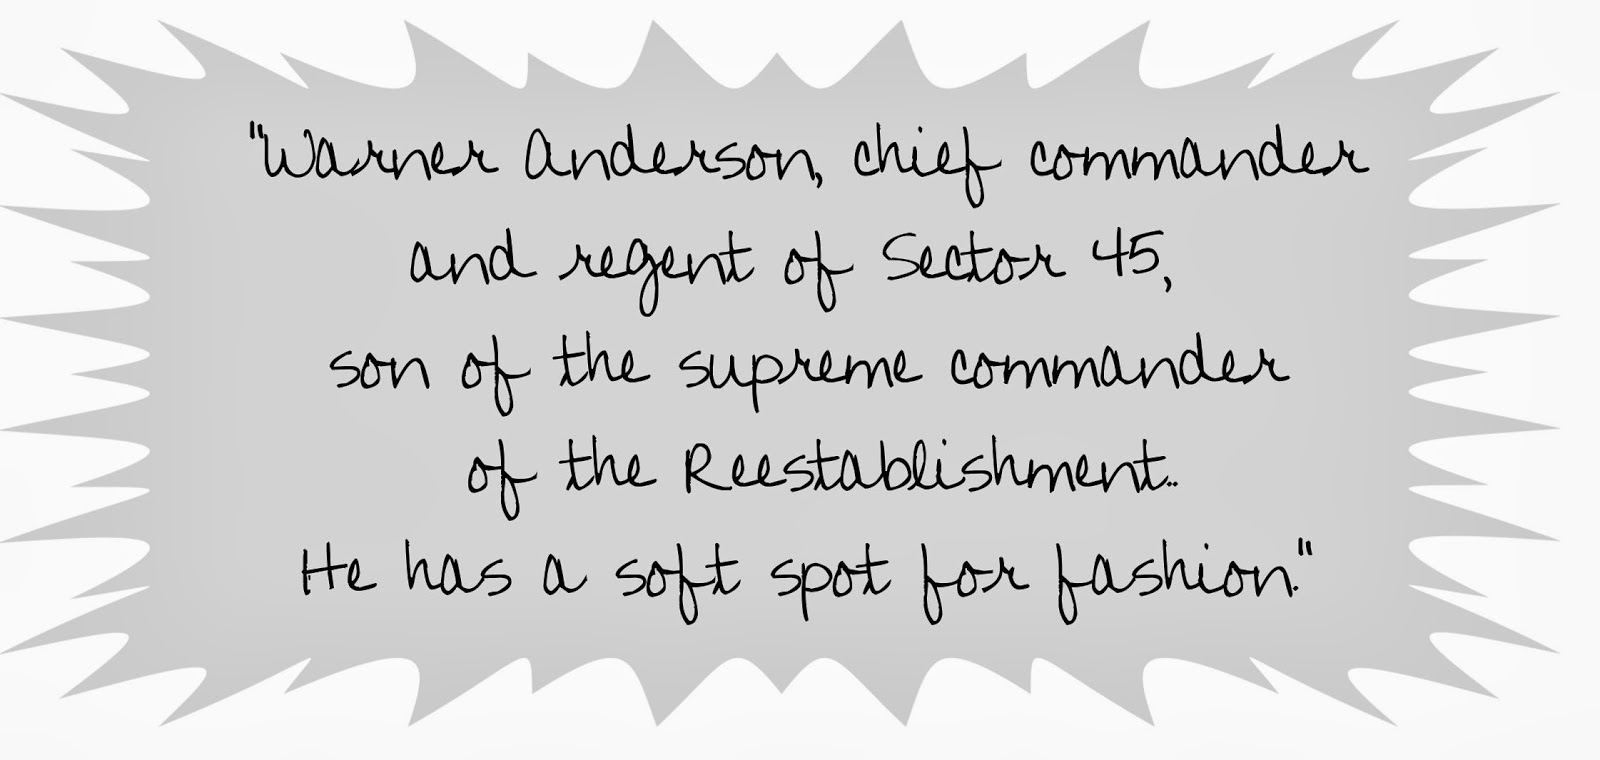 "Warner Anderson, chief commander
and regent of Sector 45,
son of the supreme commander
of the Reestablishment..
He has a soft spot for fashion."